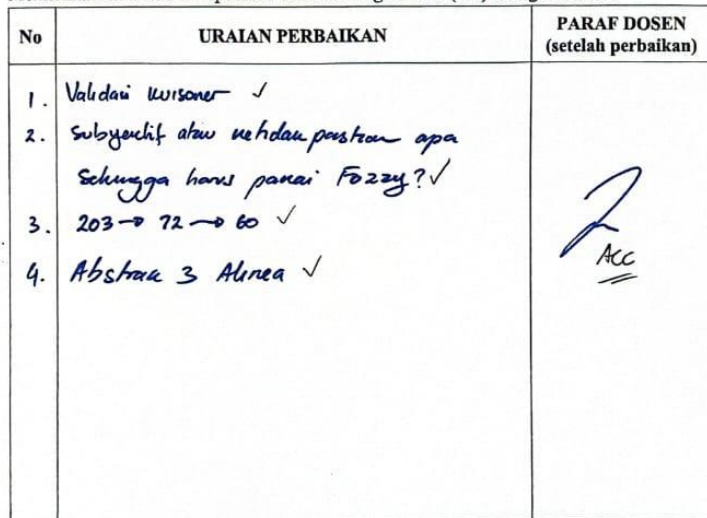 No URAIAN PERBAIKAN PARAF DOSEN
(setelah perbaikan)
1. Validasi kuisoner ✓
2. Subyektif atau ketidakpastian apa
Sehingga harus pakai Fozzy? ✓
3. 203 → 72 → 60 ✓
4. Abstrak 3 Alinea ✓
ACC